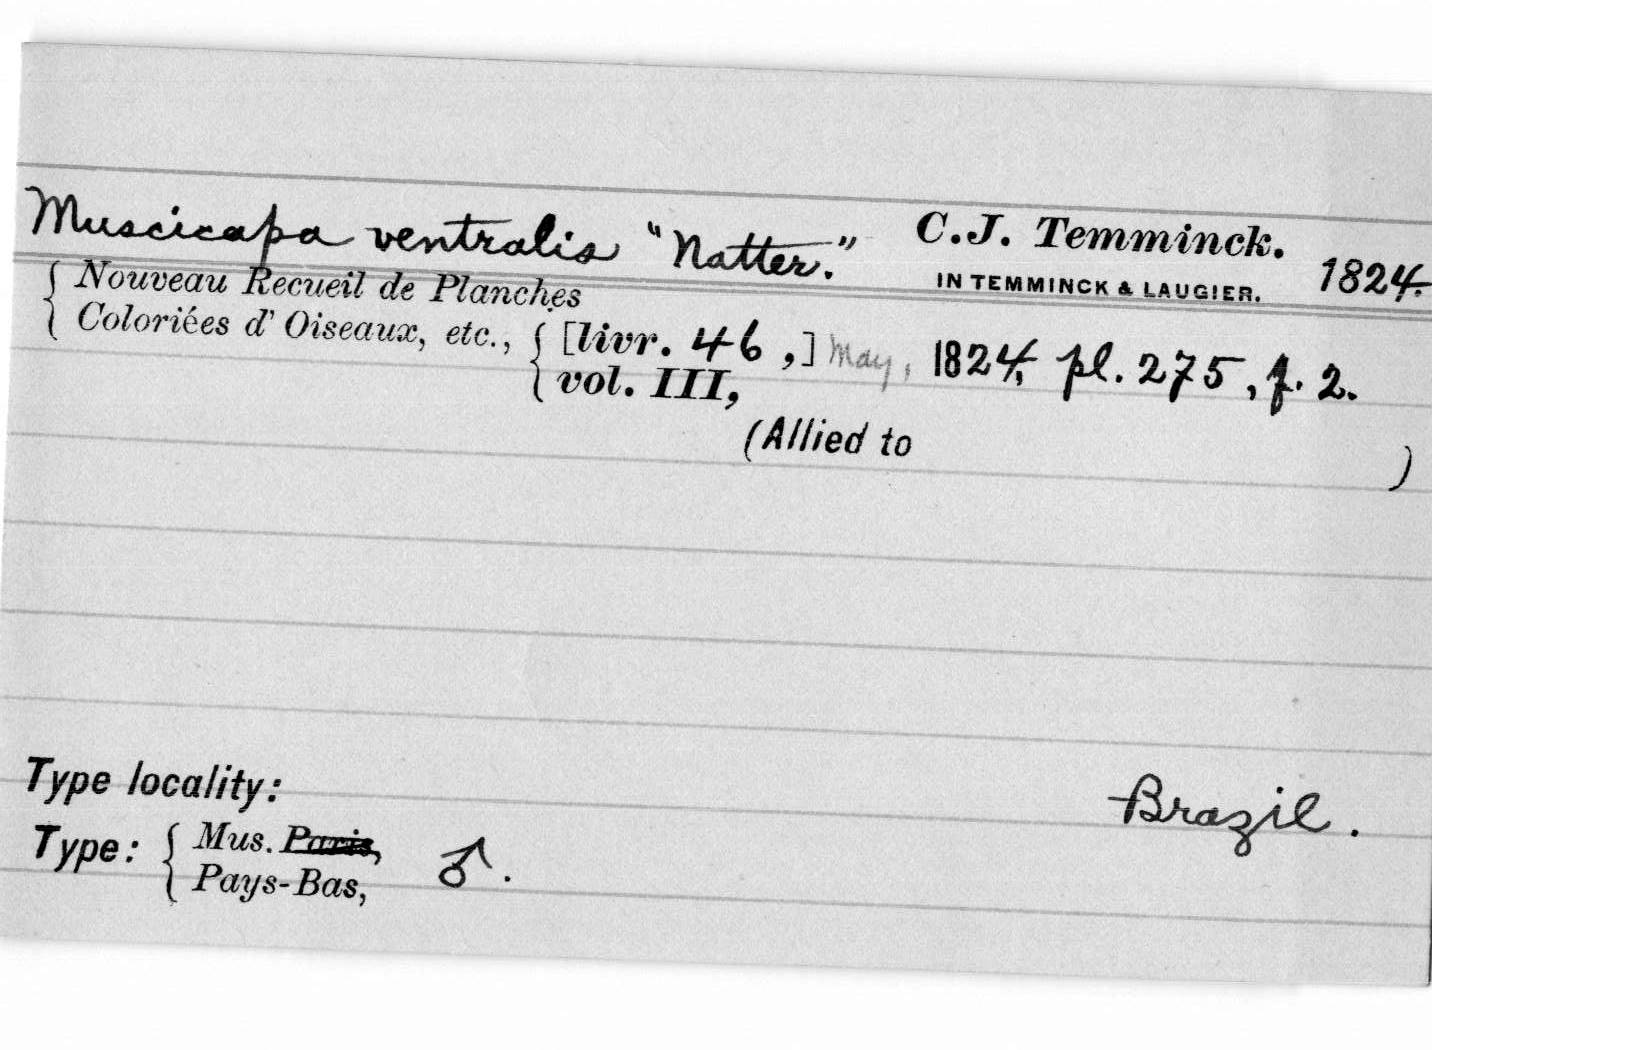 Muscicapa ventralis "Natter." C.J. Temminck.
IN TEMMINCK & LAUGIER. 1824.
{ Nouveau Recueil de Planches
Coloriées d' Oiseaux, etc., { [livr. 46 ,] May, 1824, pl. 275, f. 2.
vol. III,
(Allied to )
Type locality: Brazil.
Type: { Mus. Paris, ♂.
Pays-Bas,